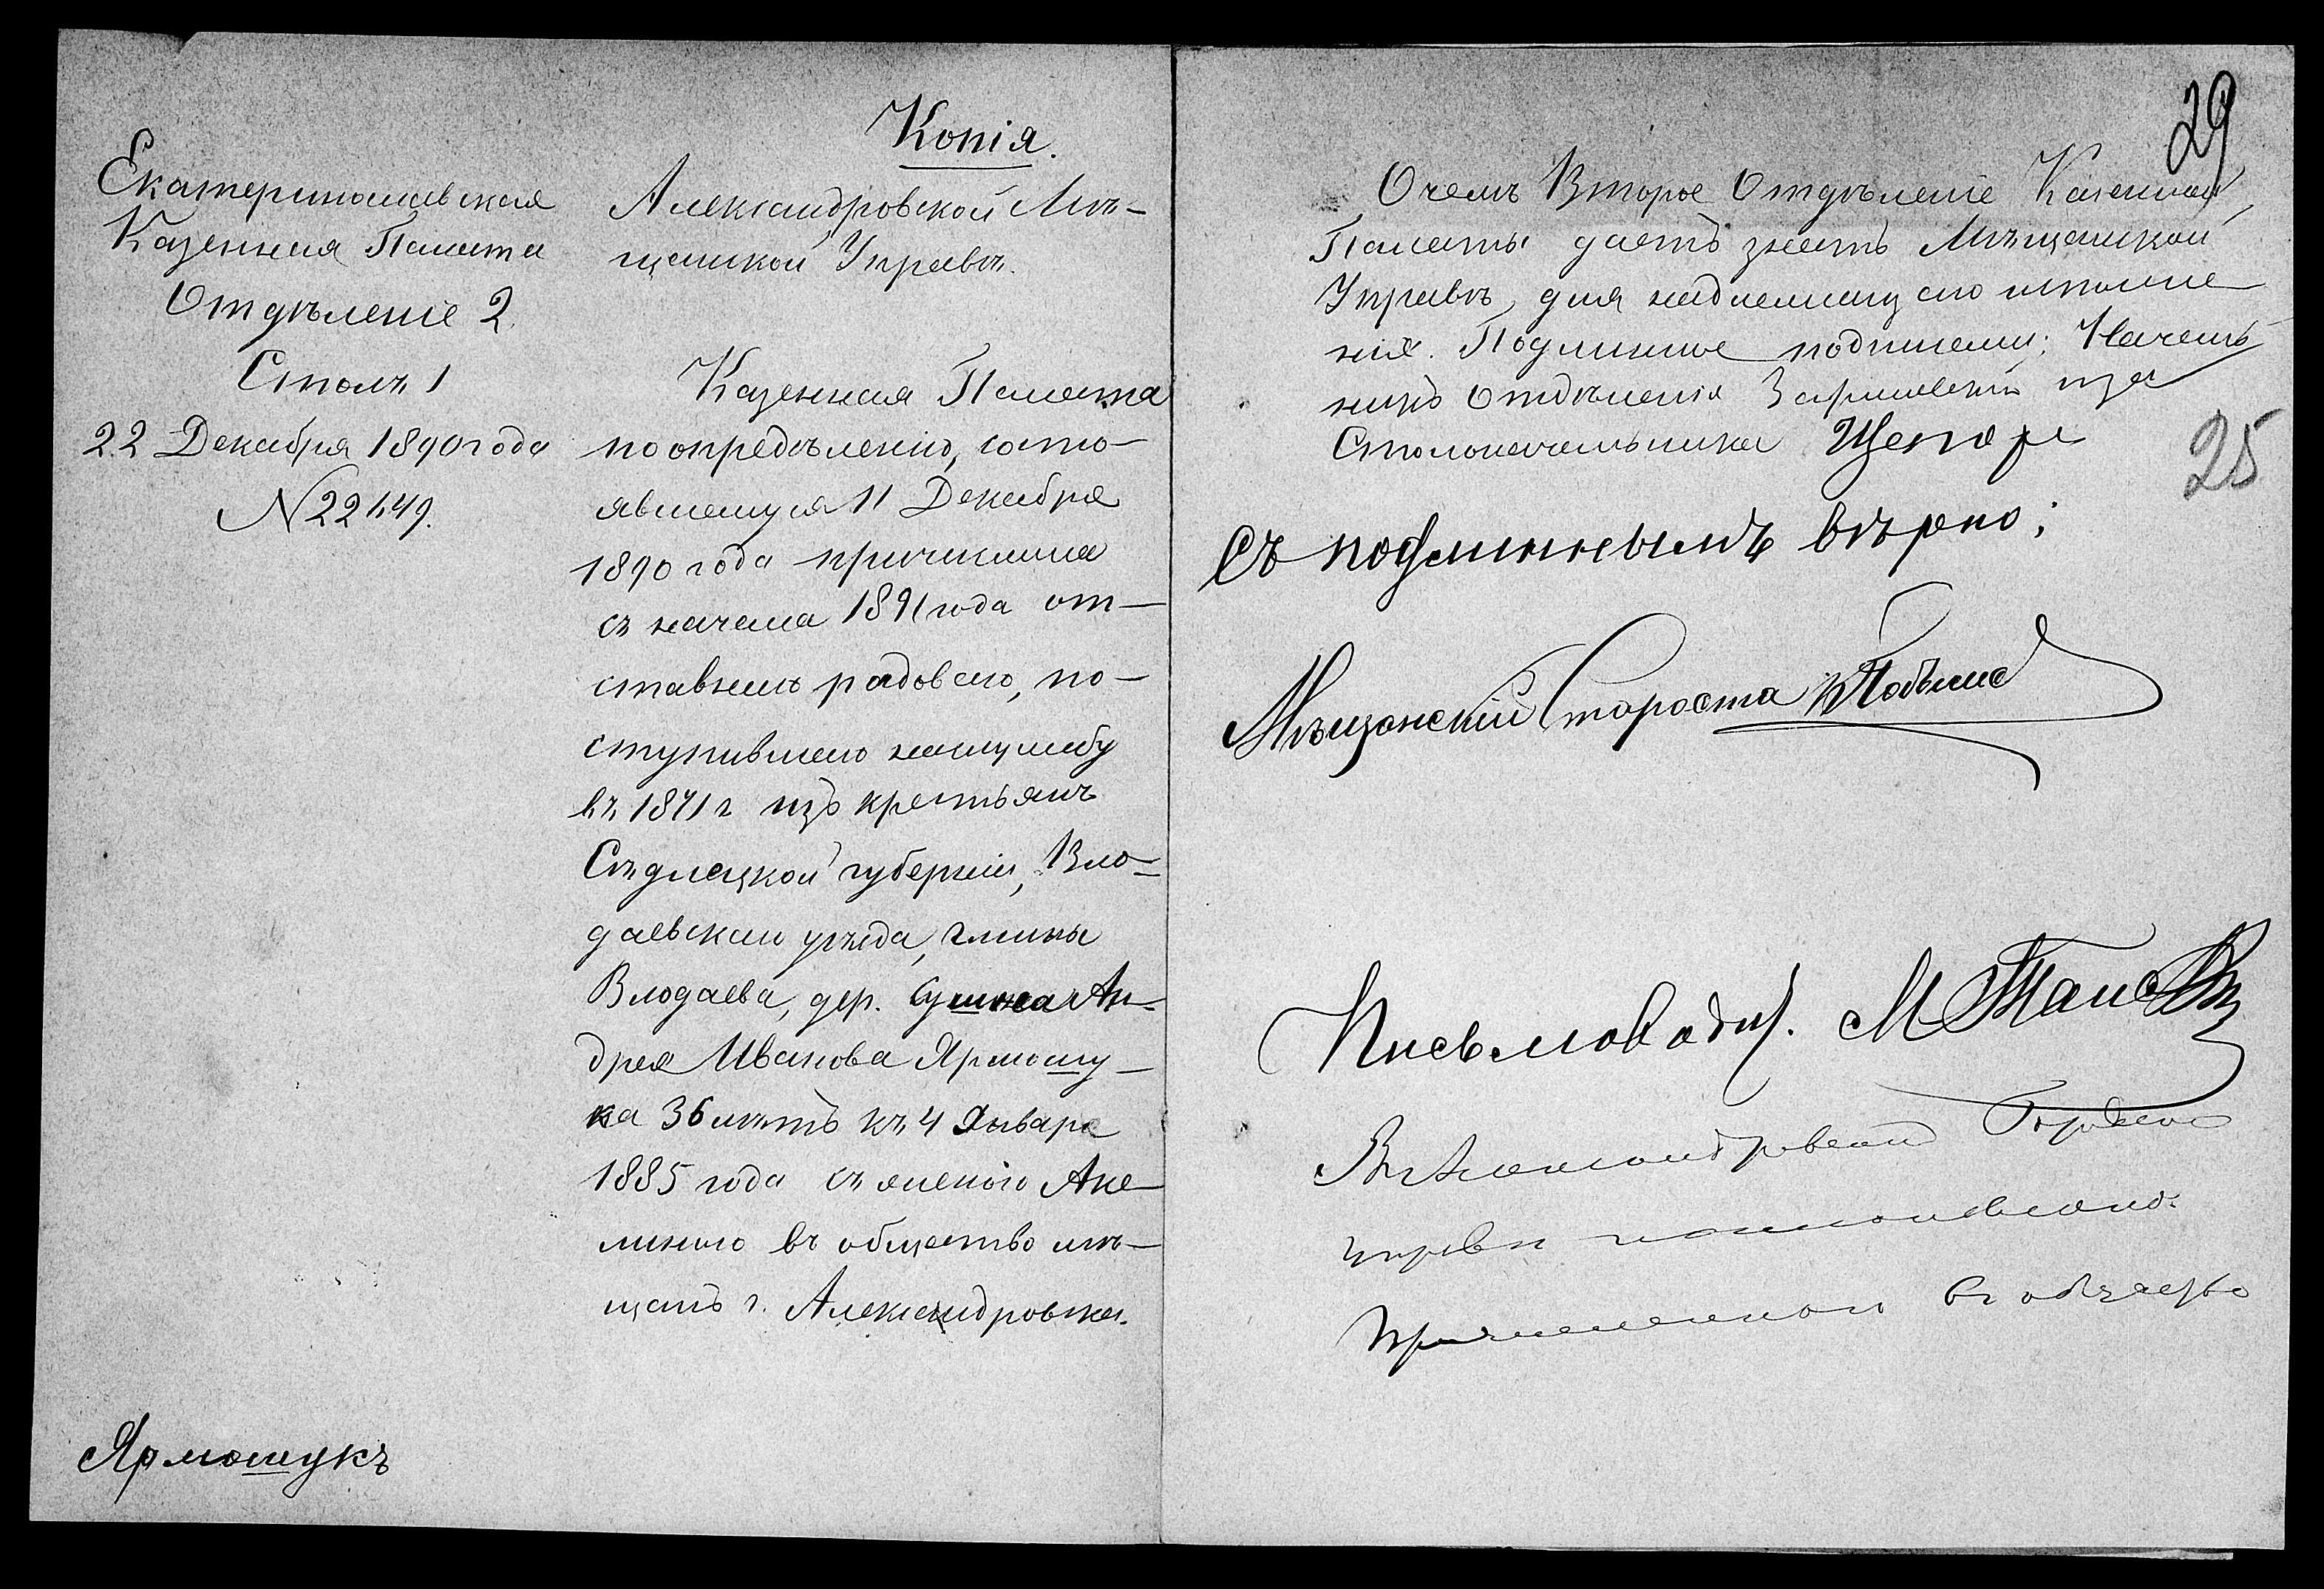 Копія.
Екатеринославская
Казенная Палата
Отдѣленіе 2.
Столъ 1
22 Декабря 1890 года
N 22449.
Александровской Мѣ-
щанской Управѣ.
Казенная Палата
по опредѣленію, состо-
явшемуся 11 Декабря
1890 года причислила
съ начала 1891 года от-
ставнаго рядоваго, по-
ступившаго на службу
въ 1871 г изъ крестьянъ
Сѣдлецкой губерніи, Вло-
даевскаго уѣзда, гмины
Влодаева, дер. Сушна Ан-
дрея Иванова Ярмошу-
ка 36 лѣтъ къ 4 Января
1885 года съ женою Аке-
линою въ общество мѣ-
щанъ г. Александровска.
Ярмошукъ
29
О чемъ Второе Отдѣленіе Казенной
Палаты даетъ знать Мѣщанской
Управѣ, для надлежащаго исполне-
нія. Подлинное подписали: Началь-
никъ Отдѣленія и за
Столоначальника
25
Съ подлиннымъ вѣрно:
Мѣщанскій Староста
Письмовод. М
Въ Александровской Городской
управѣ
въ общество